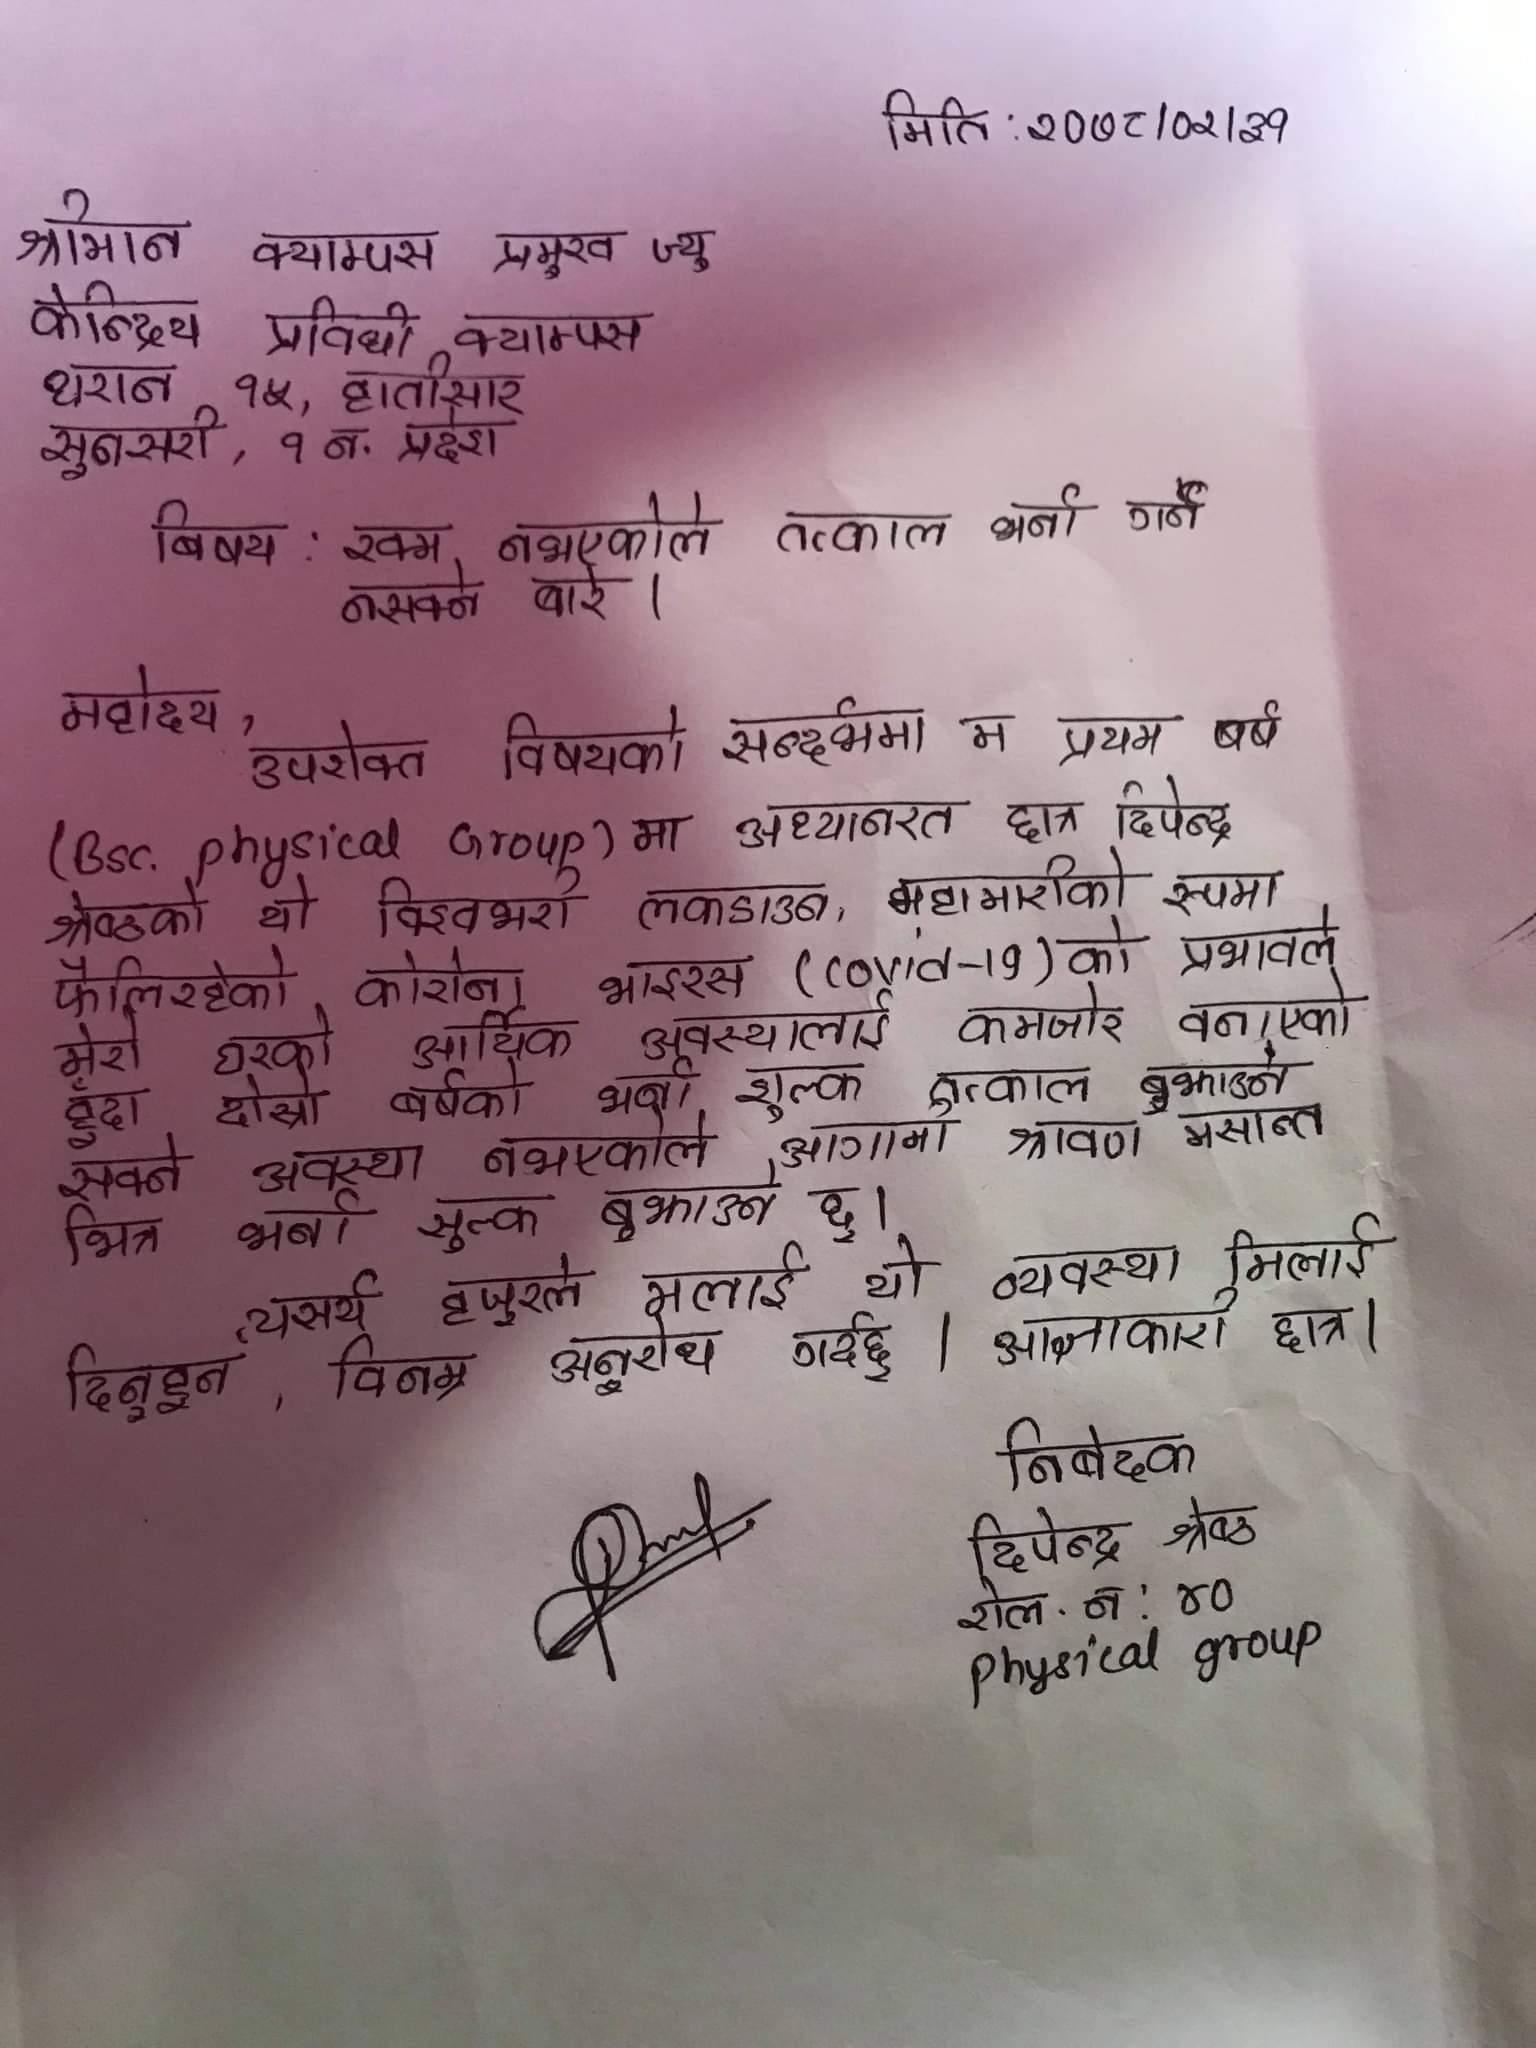 मिति : २०७८/०२/३१
श्रीमान क्याम्पस प्रमुख ज्यु
केन्द्रिय प्रविधी क्याम्पस
धरान १५, हात्तीसार
सुनसरी, १ न. प्रदेश
बिषय : रकम नभएकोले तत्काल भर्ना गर्न
नसक्ने बारे ।
महोदय,
उपरोक्त विषयको सन्दर्भमा म प्रथम बर्ष
(Bsc. physical Group) मा अध्यानरत छात्र दिपेन्द्र
श्रेष्ठको यो विश्वभरी लकडाउन, महामारीको रूपमा
फैलिरहेको कोरोना भाइरस (covid-19) को प्रभावले
मेरो घरको आर्थिक अवस्थालाई कमजोर बनाएको
हुँदा दोस्रो बर्षको भर्ना शुल्क तत्काल बुझाउन
सक्ने अवस्था नभएकोले आगामी श्रावण मसान्त
भित्र भर्ना सुल्क बुझाउने छु ।
त्यसर्थ हजुरले मलाई यो व्यवस्था मिलाई
दिनुहुन, विनम्र अनुरोध गर्दछु । आज्ञाकारी छात्र ।
निबेदक
दिपेन्द्र श्रेष्ठ
रोल. न : ४०
physical group